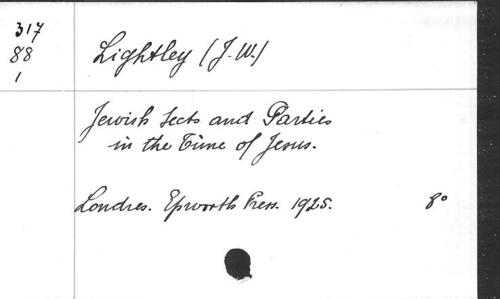 317
88
1
Lightley (J.W.)
Jewish Sects and Parties
in the Time of Jesus.
Londres. Epworth Press. 1925. 8°